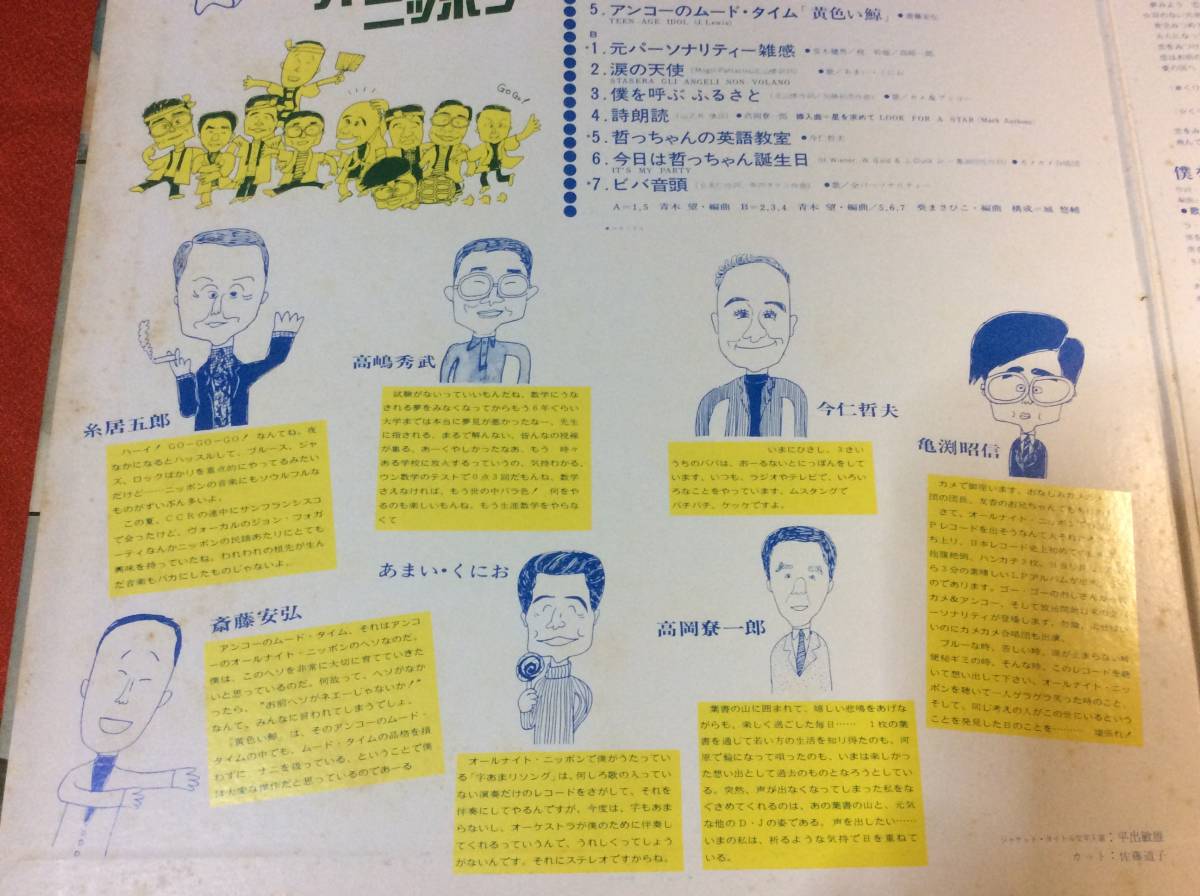 ニッポン
GOGO!
5. アンコーのムード・タイム「黄色い鯨」
TEEN AGE IDOL (J. Lewis)
B
1. 元パーソナリティー雑感
2. 涙の天使
STASERA GLI ANGELI NON VOLANO
3. 僕を呼ぶ ふるさと
4. 詩朗読 挿入曲=星を求めて LOOK FOR A STAR (Mark Anthony)
5. 哲っちゃんの英語教室 ●今仁哲夫
6. 今日は哲っちゃん誕生日
IT'S MY PARTY
7. ビバ音頭
A=1,5 青木 望・編曲 B=2,3,4 青木 望・編曲/5,6,7 葵まさひこ・編曲 構成/城 悠輔
糸居五郎
ハーイ! GO-GO-GO! なんてね、夜
なかになるとハッスルして、ブルース、ジャ
ズ、ロックばかりを重点的にやってるみたい
だけど……ニッポンの音楽にもソウルフルな
ものがずいぶん多いよ。
この夏、CCRの連中にサンフランシスコ
で会ったけど、ヴォーカルのジョン・フォガ
ーティなんかニッポンの民謡あたりにとても
興味を持っていたね。われわれの祖先が生ん
だ音楽もバカにしたものじゃないよ。
高嶋秀武
試験がないっていいもんだね、数学にうな
される夢をみなくなってからもう6年ぐらい
大学までは本当に夢見が悪かったなー、先生
に指される、まるで解んない、皆んなの視線
が集る、あーくやしかったなあ、もう 時々
ある学校に放火するっていうの、気持わかる、
ウン数学のテストで0点3回だもんね、数学
さえなければ、もう世の中バラ色! 何をや
るのも楽しいもんね、もう生涯数学をやらな
くて
今仁哲夫
いまにひさし、3さい
うちのパパは、おーるないとにっぽんをして
います、いつも、ラジオやテレビで、いろい
ろなことをやっています、ムスタングで
バチバチ、ケッケですよ。
亀渕昭信
カメで御座います、おなじみカメカメ
さて、オールナイト・ニッポンで
Pレコードを出そうなんて
ち上り、日本レコード史上初めて
抱腹絶倒、ハンカチ3枚、
ら3分の素晴しいLPアルバムが
のであります。ゴー・ゴーのおじさん
カメ&アンコー、そして
ーソナリティが登場します、
いのにカメカメ合唱団も出演。
ブルーな時、苦しい時、
便秘ギミの時、そんな時、このレコードを聴
いて想い出して下さい、オールナイト・ニッ
ポンを聴いて一人ゲラゲラ笑った時のこと、
そして、同じ考えの人がこの世にいるという
ことを発見した日のことを……… 頑張れ!
斎藤安弘
アンコーのムード・タイム、それはアンコ
ーのオールナイト・ニッポンのヘソなのだ。
僕は、このヘソを非常に大切に育てていきた
いと思っているのだ。何故って、ヘソがなか
ったら、“お前ヘソがネエーじゃないか!”
なんて、みんなに言われてしまうでしょ。
『黄色い鯨』は、そのアンコーのムード・
タイムの中でも、ムード・タイムの品格を損
わずに、ナニを扱っている、ということで僕
は大変な傑作だと思っているのであーる
あまい・くにお
オールナイト・ニッポンで僕がうたってい
る「字あまりソング」は、何しろ歌の入ってい
ない演奏だけのレコードをさがして、それを
伴奏にしてやるんですが、今度は、字もあま
らないし、オーケストラが僕のために伴奏し
てくれるっていうんで、うれしくってしょう
がないんです。それにステレオですからね。
高岡寮一郎
葉書の山に囲まれて、嬉しい悲鳴をあげな
がらも、楽しく過ごした毎日…… 1枚の葉
書を通して若い方の生活を知り得たのも、河
原で輪になって唄ったのも、いまは楽しかっ
た想い出として過去のものとなろうとしてい
る。突然、声が出なくなってしまった私をな
ぐさめてくれるのは、あの葉書の山と、元気
な他のD・Jの姿である。声を出したい……
いまの私は、祈るような気持で日を重ねて
いる。
平出敏雄
カット:佐藤道子